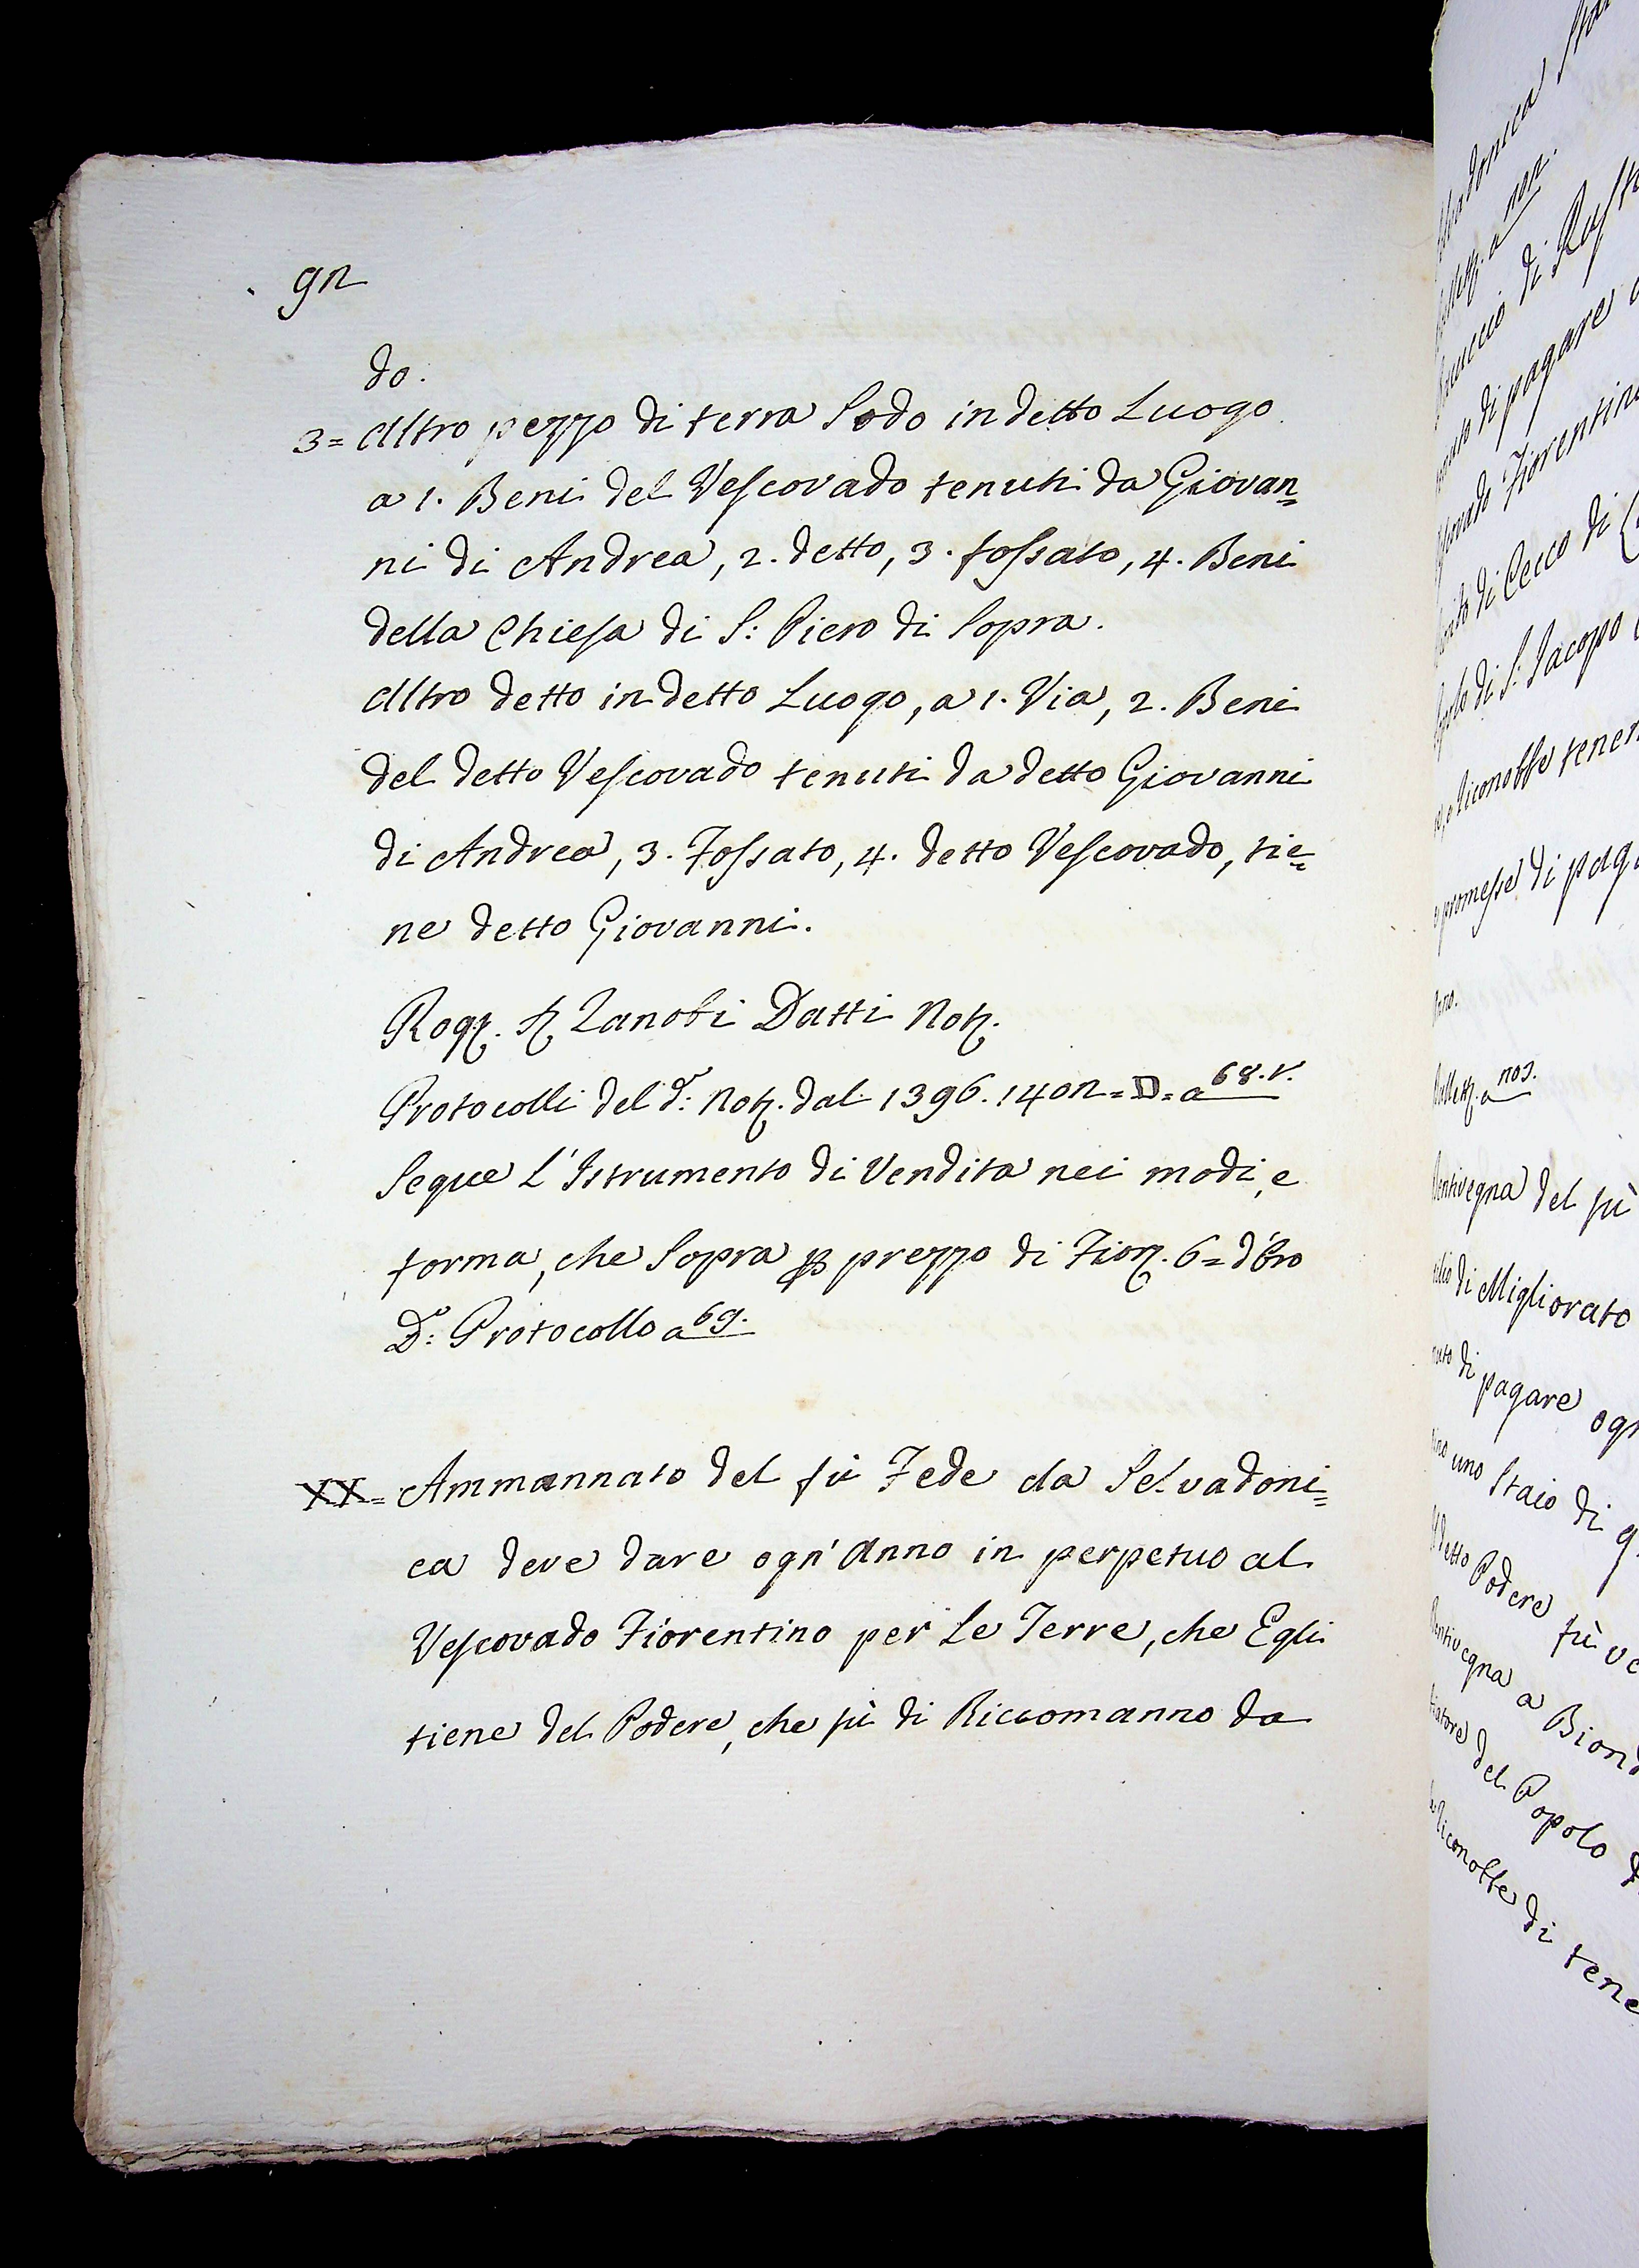 92
do.
3= Altro pezzo di terra Sodo in detto Luogo
a 1. Beni del Vescovado tenuti da Giovan=
ni di Andrea, 2. detto, 3. fossato, 4. Beni
della Chiesa di S: Piero di Sopra.
Altro detto in detto Luogo, a 1. Via, 2. Beni
del detto Vescovado tenuti da detto Giovanni
di Andrea, 3. Fossato, 4. detto Vescovado, tie=
ne detto Giovanni.
Rog. Zanobi Datti Not.
Protocolli del d.o: Not. dal 1396. 1402 = D = a 68. v.
Segue L'Istrumento di Vendita nei modi, e
forma, che Sopra p prezzo di Fior. 6= d'Oro
D.o: Protocollo a 69.
XX= Ammannato del fù Fede da Selvadoni=
ca deve dare ogn'Anno in perpetuo al
Vescovado Fiorentino per Le Terre, che Egli
tiene del Podere, che fù di Riccomanno da
di
di pagare
Fiorentin
di Cecco di
di S. Jacopo
tener
di pag
del fù
di Migliorato
di pagare ogn
uno Staio di g
detto Podere fù ve
a Biond
del Popolo d
di tene